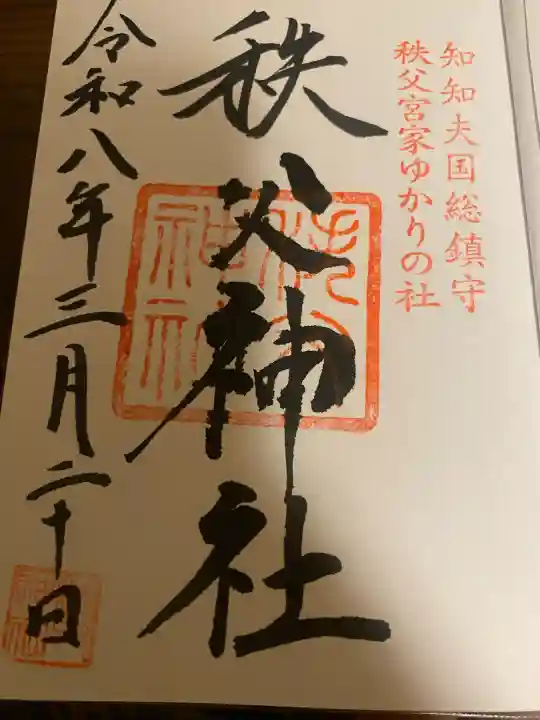 知知夫国総鎮守
秩父宮家ゆかりの社
秩父神社
令和八年三月二十日